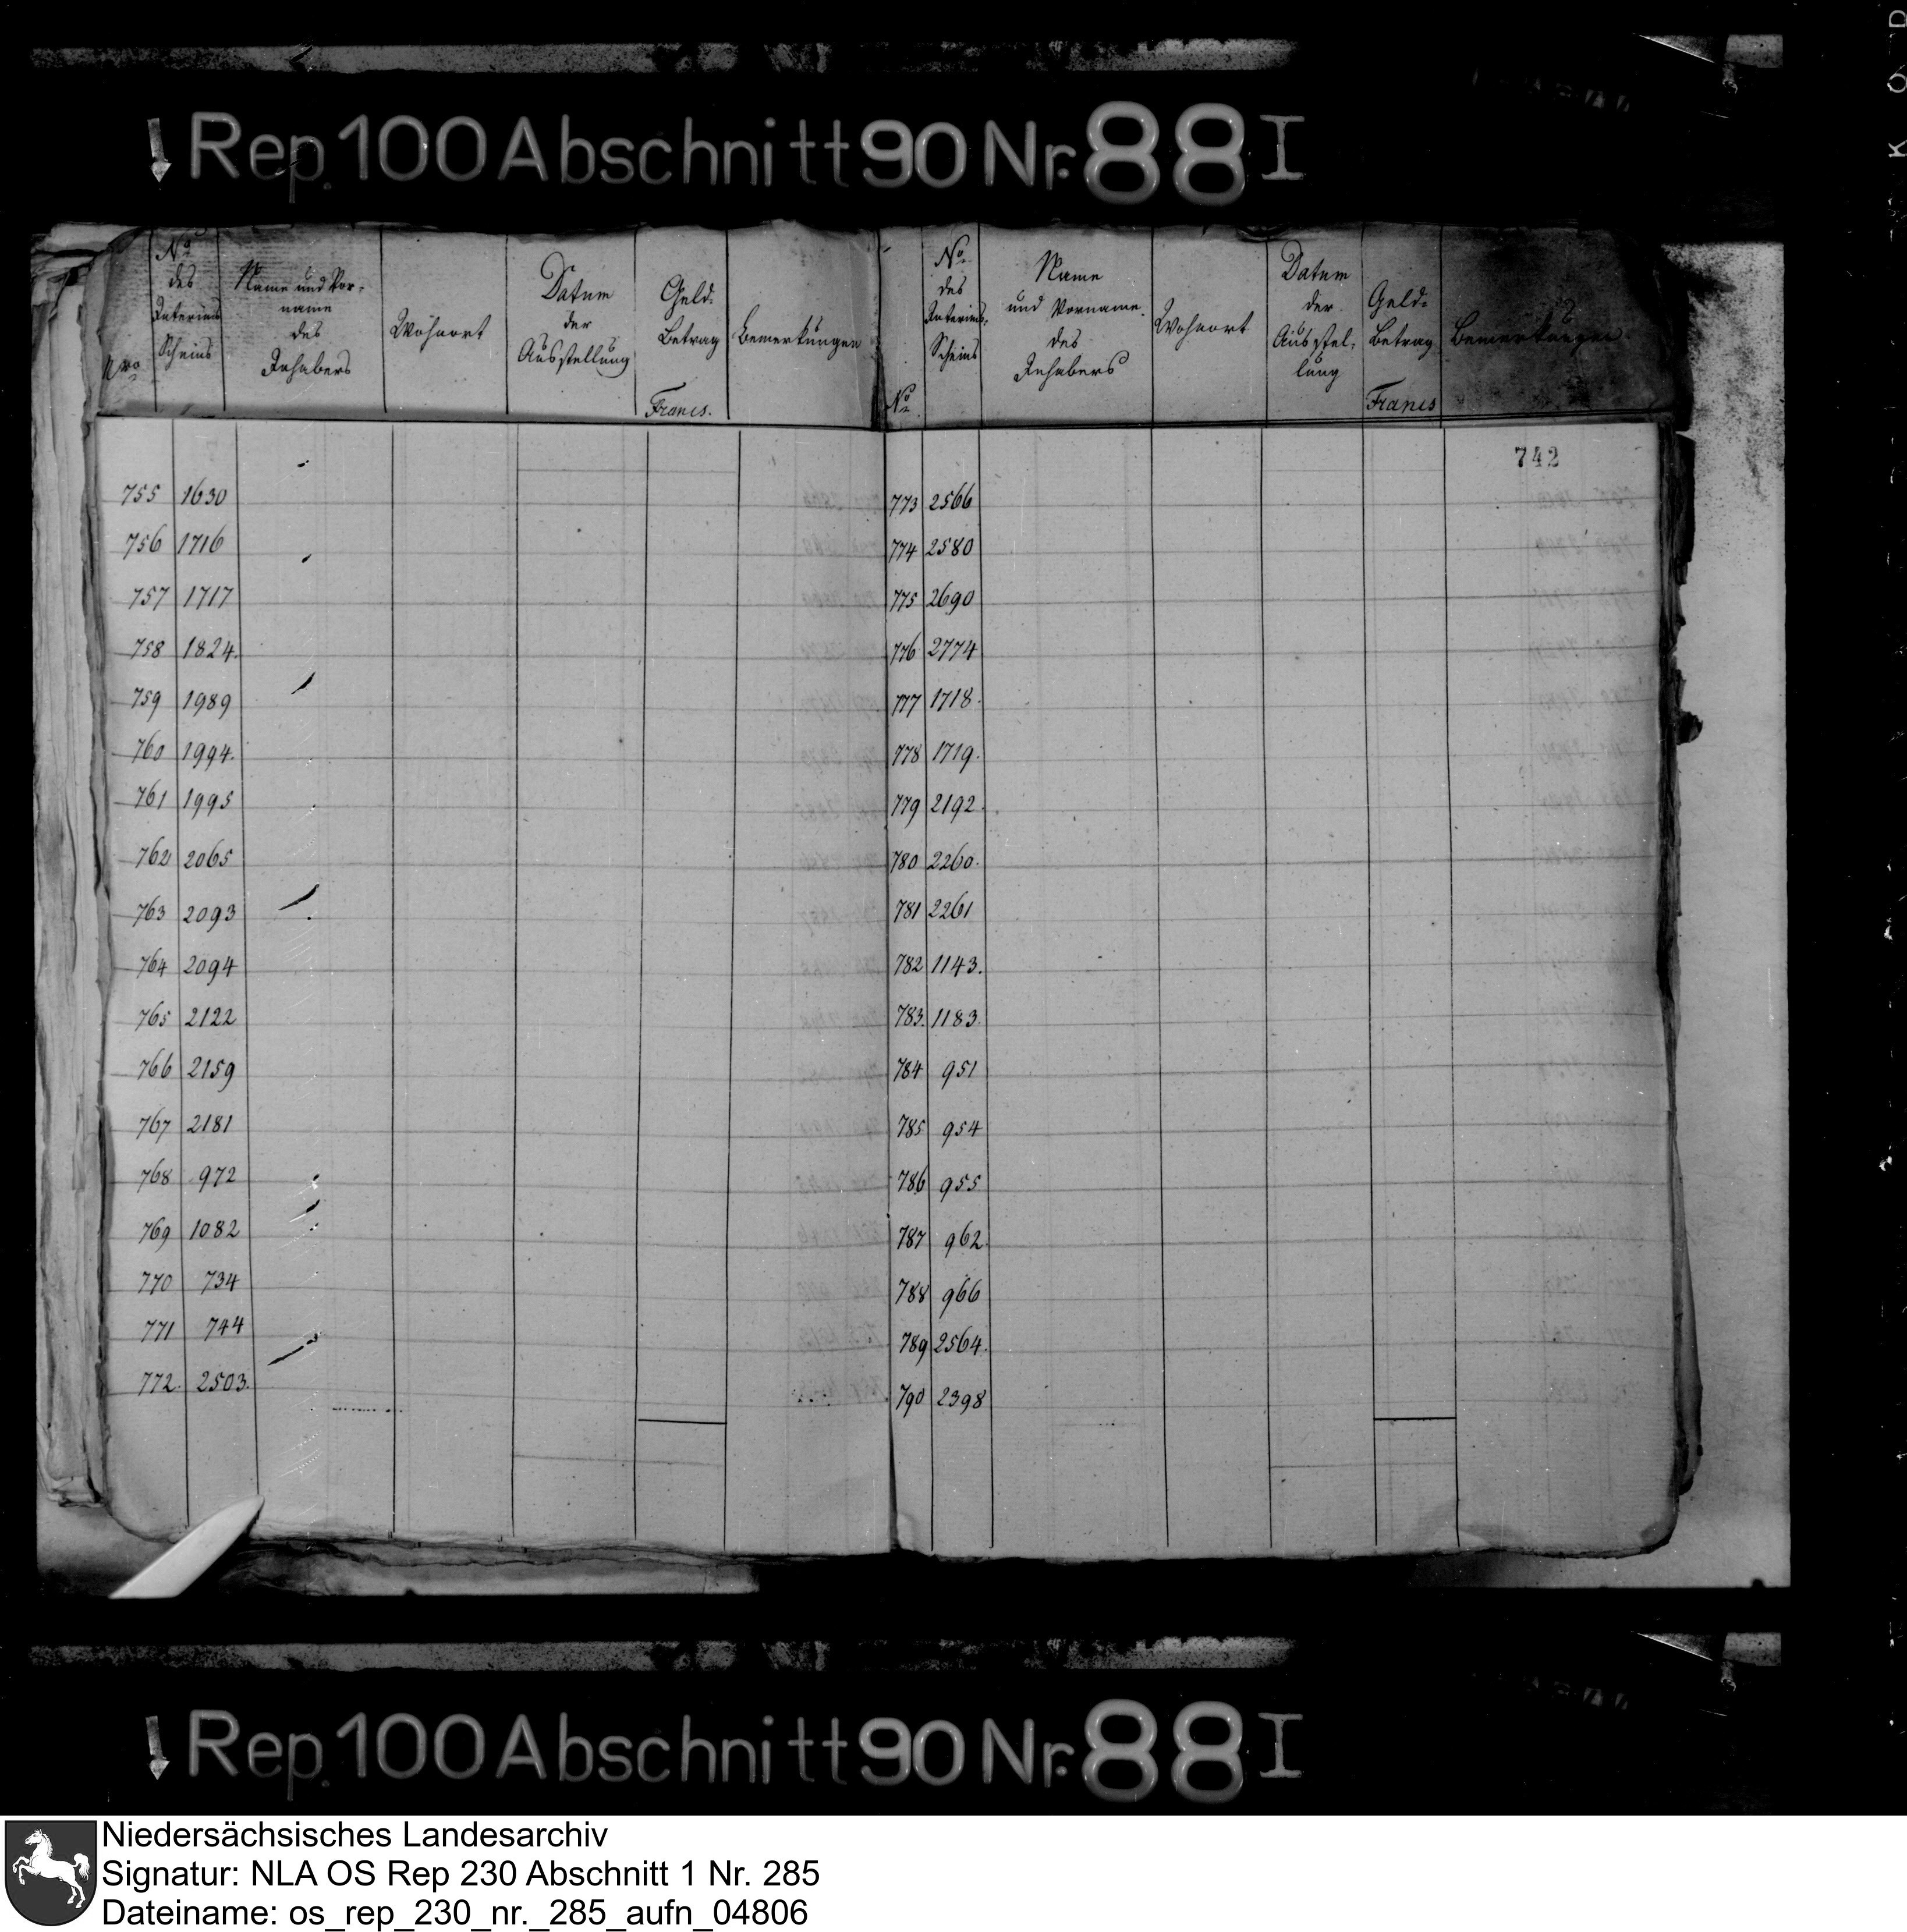 Rep. 100 Abschnitt 90 Nr. 88 I
No des Interims Scheins
Name und Vorname des Inhabers
Wohnort
Datum der Ausstellung
Geld-Betrag
Francs.
Bemerkungen
Nro
755 1630
756 1716
757 1717
758 1824.
759 1989
760 1994.
761 1995
762 2065
763 2093
764 2094
765 2122
766 2159
767 2181
768 972
769 1082
770 734
771 744
772. 2503.
No
No des Interims-Scheins
Name und Vorname. des Inhabers
Wohnort
Datum der Ausstellung
Geld-Betrag
Francs
Bemerkungen
742
773 2566
774 2580
775 2690
776 2774
777 1718.
778 1719.
779 2192.
780 2260.
781 2261
782 1143.
783. 1183.
784 951
785 954
786 955
787 962.
788 966
789 2564.
790 2398
Rep. 100 Abschnitt 90 Nr. 88 I
Niedersächsisches Landesarchiv
Signatur: NLA OS Rep 230 Abschnitt 1 Nr. 285
Dateiname: os_rep_230_nr._285_aufn_04806